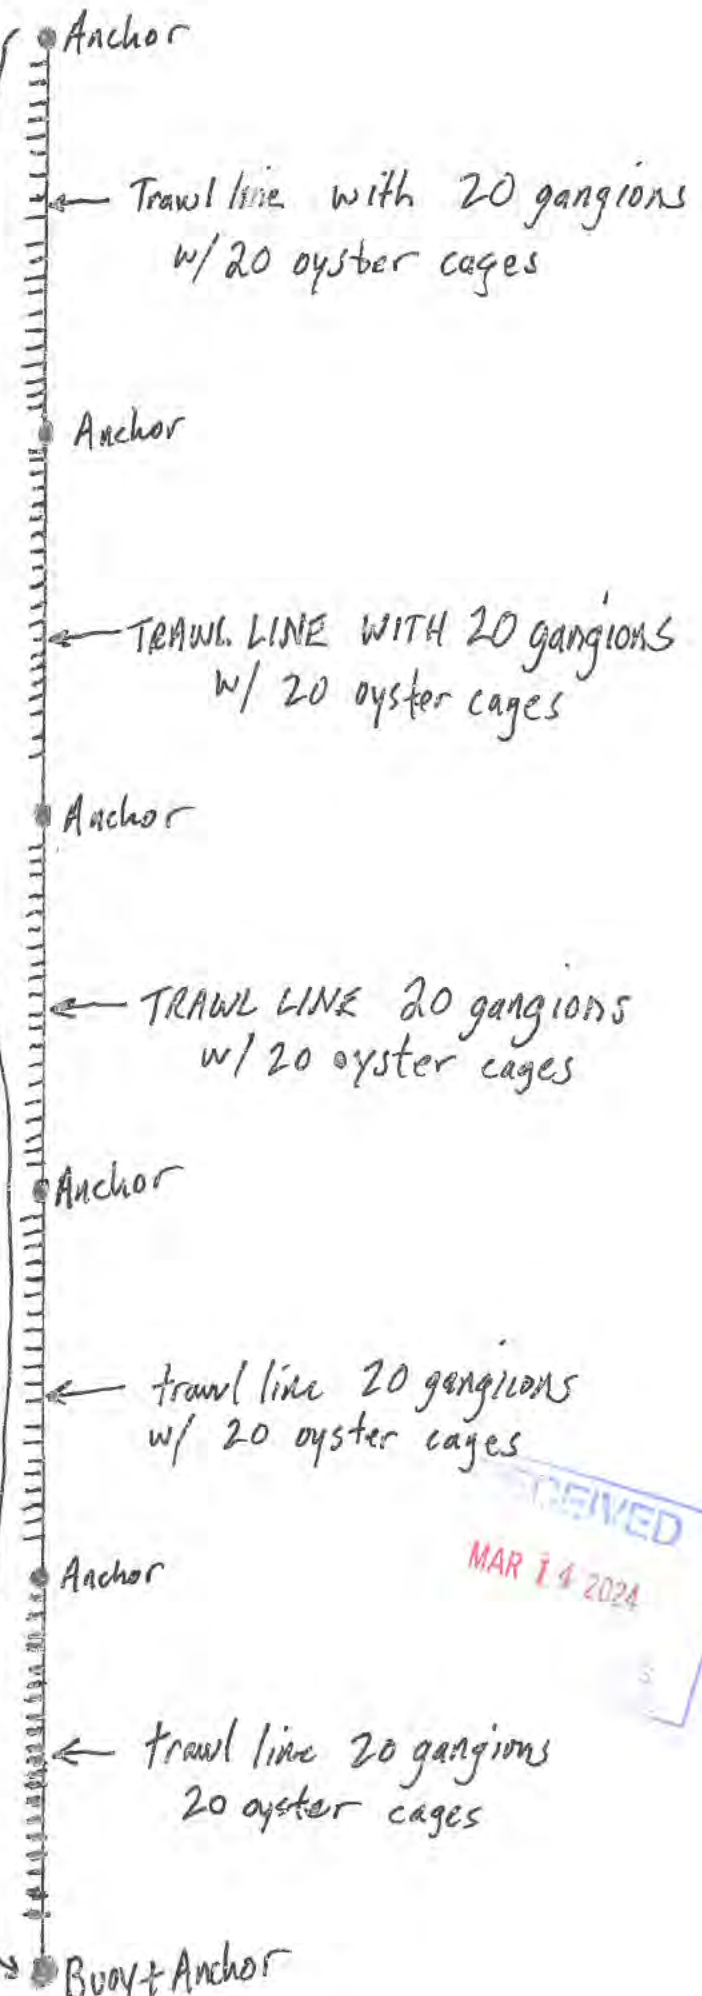 Anchor
Trawl line with 20 gangions
w/ 20 oyster cages
Anchor
TRAWL LINE WITH 20 gangions
w/ 20 oyster cages
Anchor
TRAWL LINE 20 gangions
w/ 20 oyster cages
Anchor
trawl line 20 gangions
w/ 20 oyster cages
CEIVED
MAR 14 2024
Anchor
trawl line 20 gangions
20 oyster cages
Buoy + Anchor